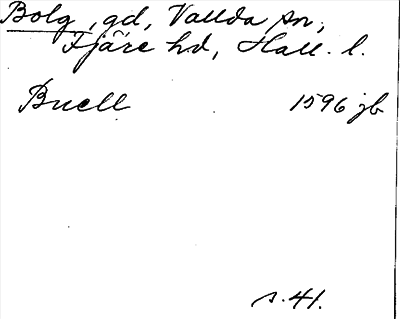 Bolg, gd, Vallda sn,
Fjäre hd, Hall. l.
Buell 1596 jb
s. 41.